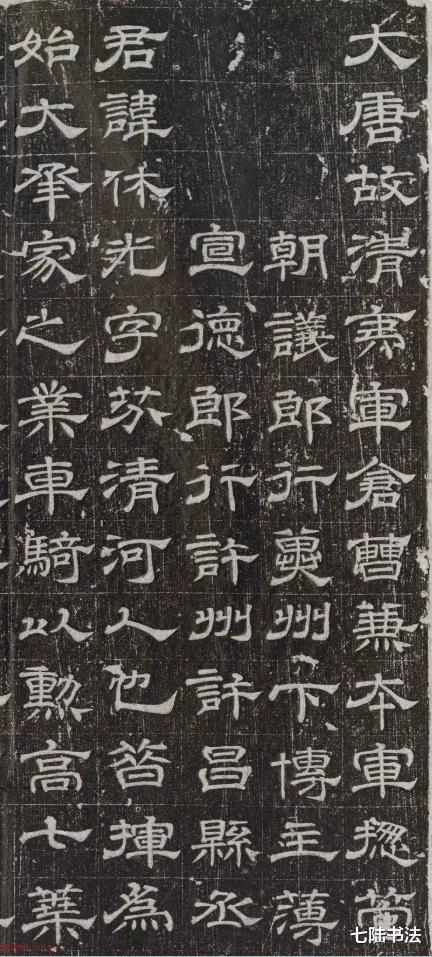 大唐故清夷軍倉曹兼本軍揔管
朝議郎行冀州下博主薄
宣德郎行許州許昌縣丞
君諱休光字清河人也昔揮為
始大承家之業車騎以勲高七葉
七陆书法